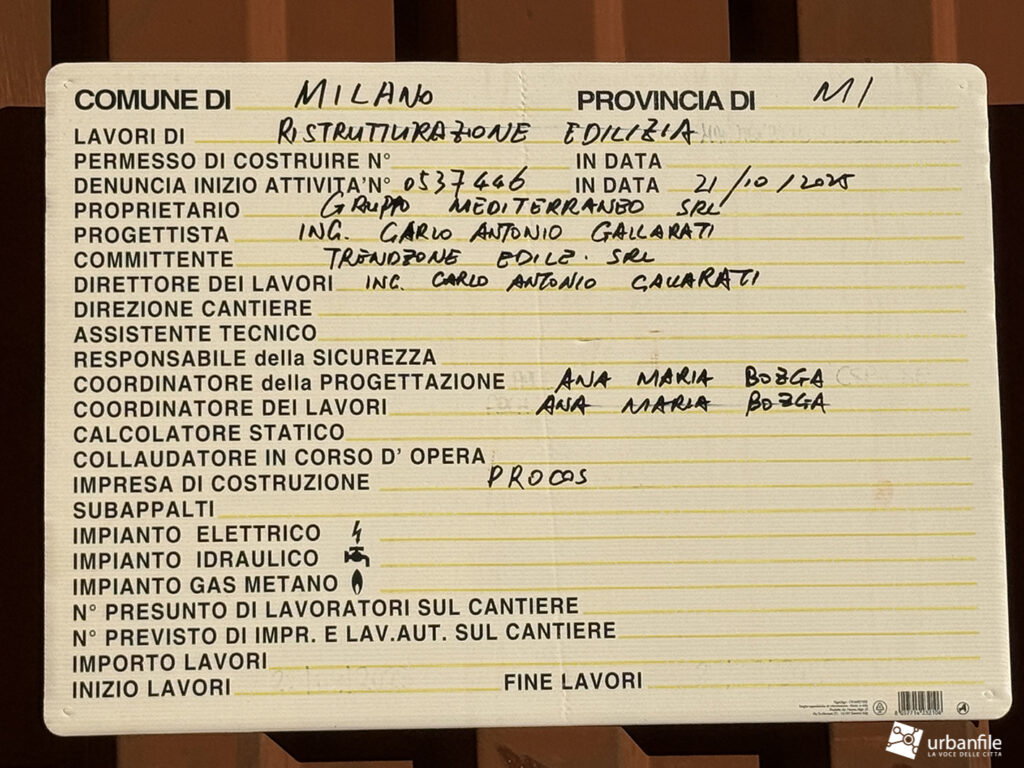 COMUNE DI MILANO PROVINCIA DI MI
LAVORI DI RISTRUTTURAZIONE EDILIZIA
PERMESSO DI COSTRUIRE N° IN DATA
DENUNCIA INIZIO ATTIVITA'N° 0537446 IN DATA 21/10/2025
PROPRIETARIO GRUPPO MEDITERRANEO SRL
PROGETTISTA ING. CARLO ANTONIO GALLARATI
COMMITTENTE TRENDZONE EDILE. SRL
DIRETTORE DEI LAVORI ING. CARLO ANTONIO GALLARATI
DIREZIONE CANTIERE
ASSISTENTE TECNICO
RESPONSABILE della SICUREZZA
COORDINATORE della PROGETTAZIONE ANA MARIA BOZGA
COORDINATORE DEI LAVORI ANA MARIA BOZGA
CALCOLATORE STATICO
COLLAUDATORE IN CORSO D' OPERA
IMPRESA DI COSTRUZIONE PROCOS
SUBAPPALTI
IMPIANTO ELETTRICO
IMPIANTO IDRAULICO
IMPIANTO GAS METANO
N° PRESUNTO DI LAVORATORI SUL CANTIERE
N° PREVISTO DI IMPR. E LAV.AUT. SUL CANTIERE
IMPORTO LAVORI
INIZIO LAVORI FINE LAVORI
urbanfile
LA VOCE DELLE CITTÀ